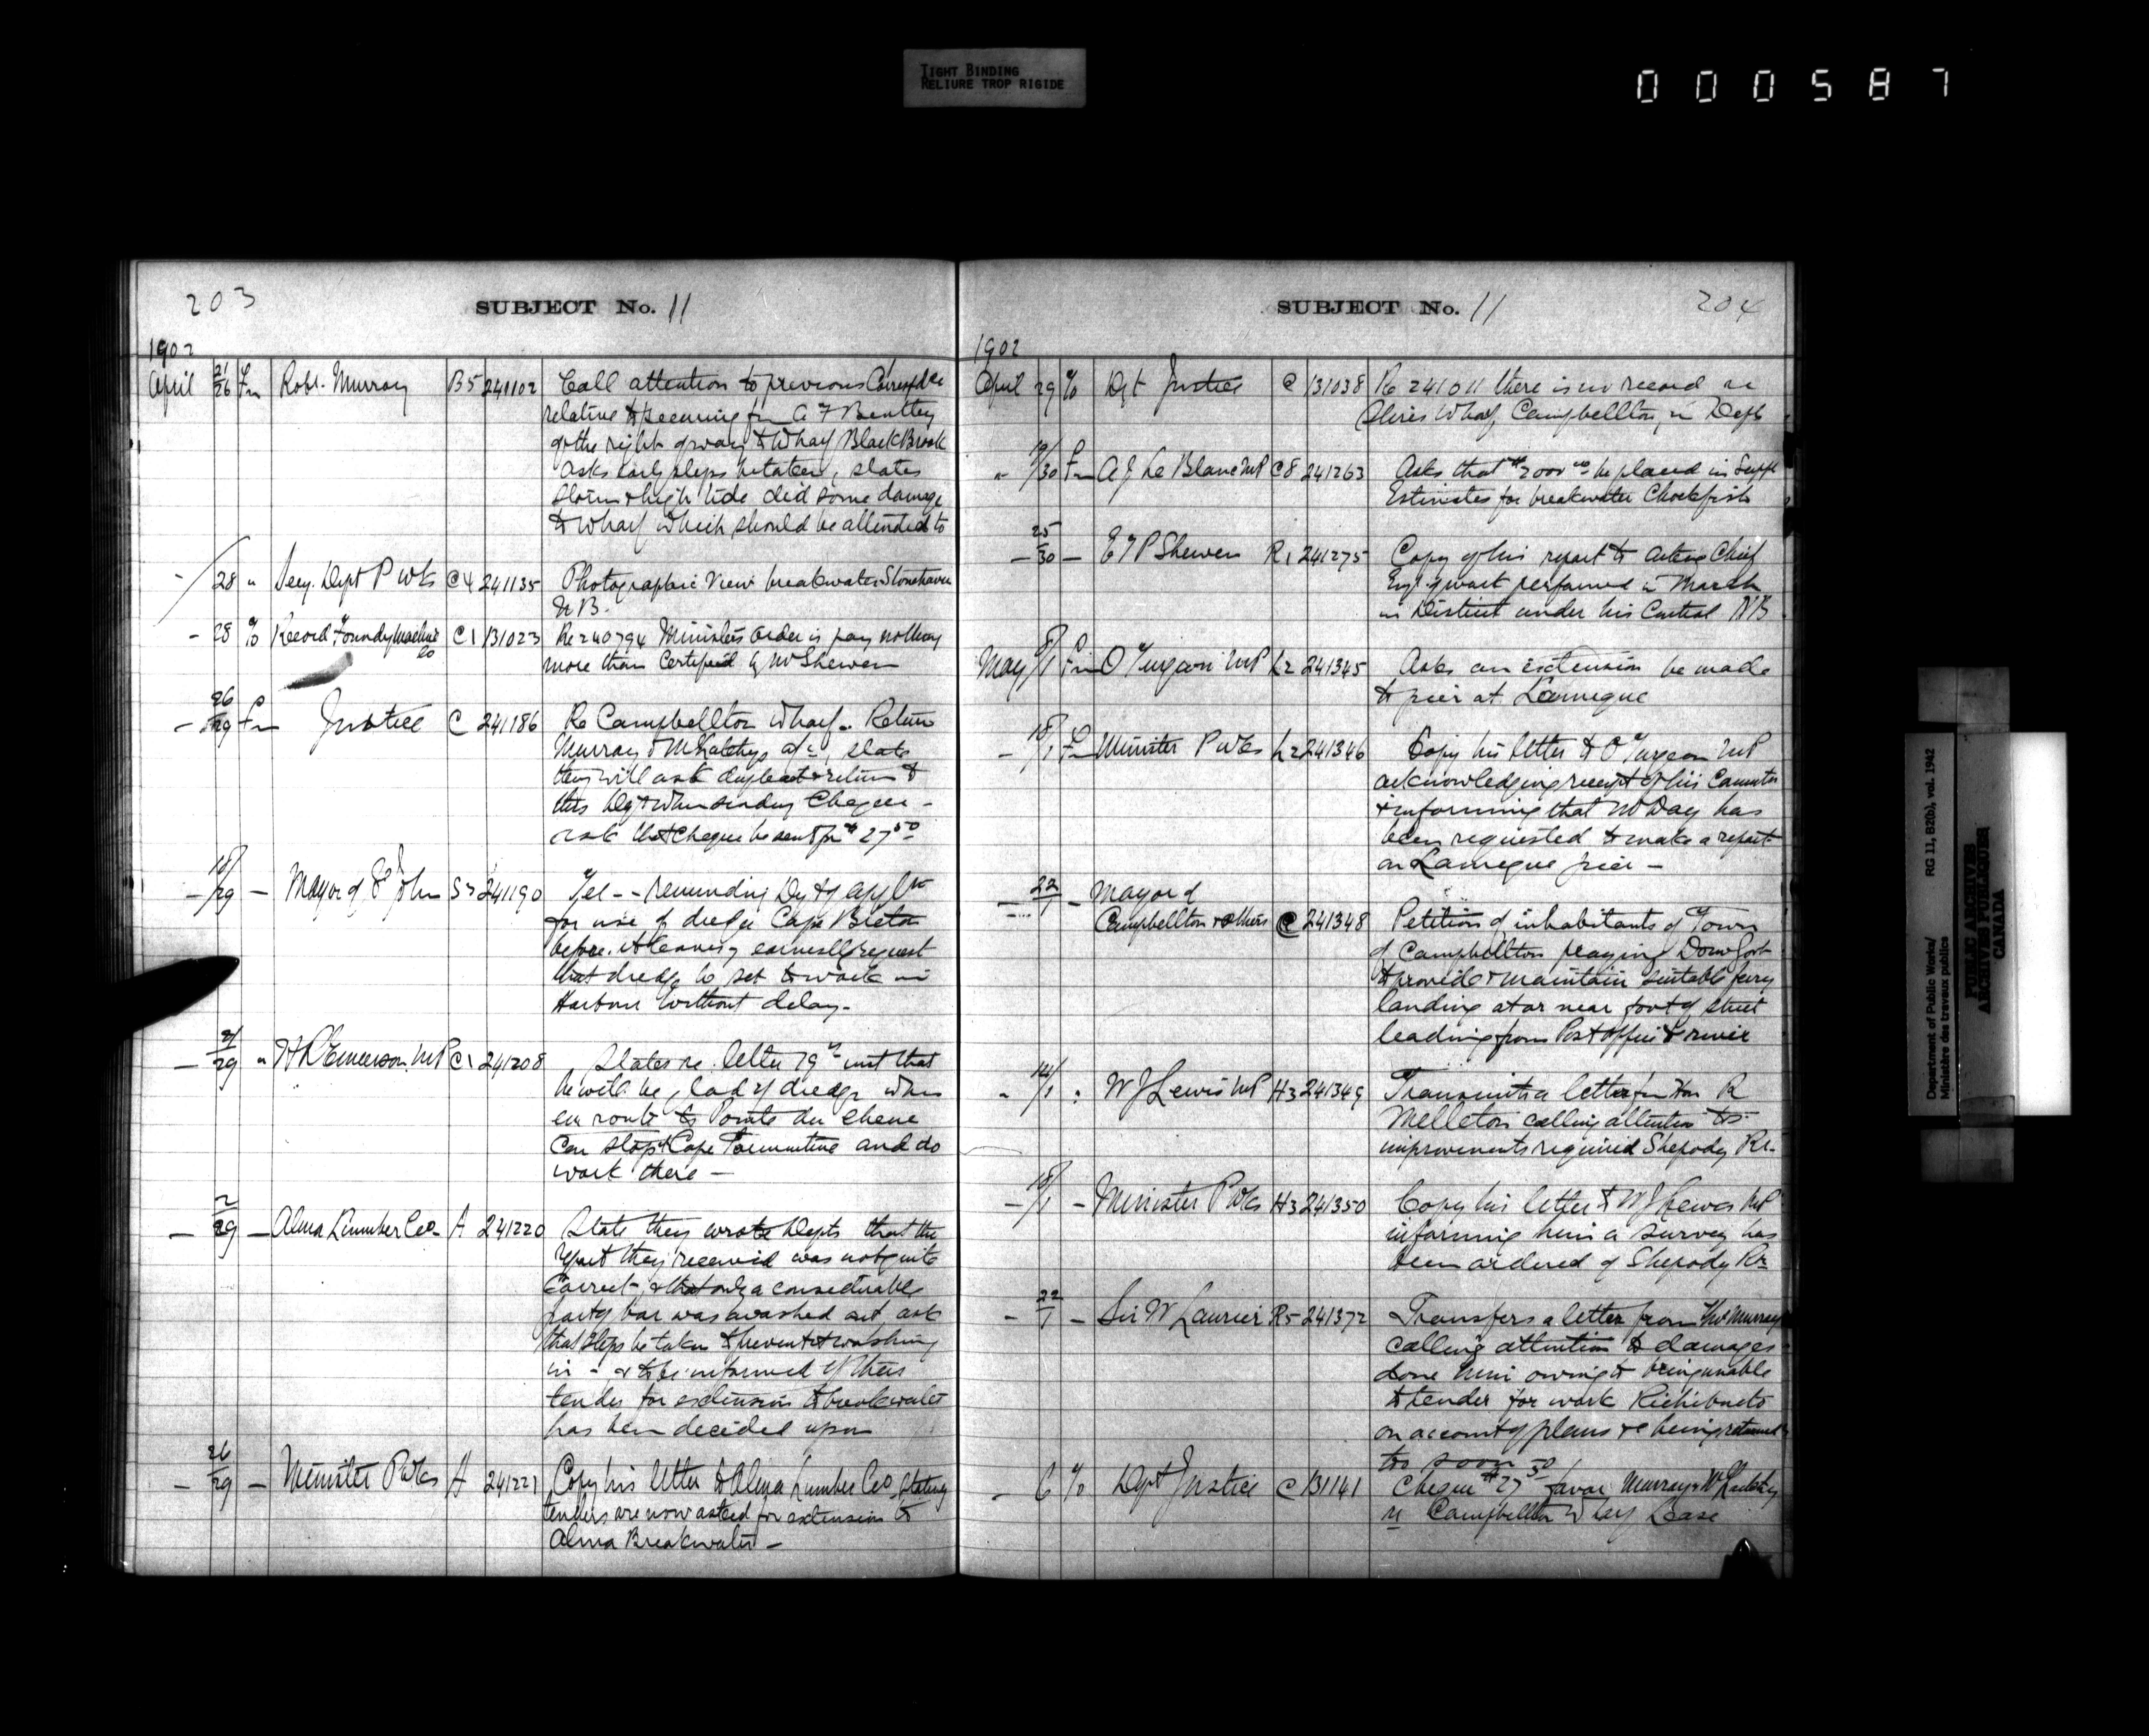 TIGHT BINDING
RELIURE TROP RIGIDE
000587
203
SUBJECT No. 11
1902
April 21/26 Fm Robt. Murray B5 241102 Call attention to previous Correspdce
relative to securing fm A F Bentley
of the right of way to Wharf Black Brook
asks early steps be taken, states
storm & high tide did some damage
to Wharf which should be attended to
28 " Secy. Dept P Wks C4 241135 Photographic View breakwater Stonehaven
N B.
- 28 % Record Foundry Machine Co C1 131023 Re 240794 Ministers order is pay nothing
more than Certified by Mr Shewen
- 26/29 Fm Justice C 241186 Re Campbellton Wharf. Return
Murray & McLatchy a/c, state
they will ask duplicate & return to
this Dept when sending Cheque -
ask that cheque be sent for $27.50
- 18/29 - Mayor of St John S3 241190 Tel - - reminding Dept of appln
for use of dredge Cape Breton
before it leaving earnestly request
that dredge be set to work in
Harbour without delay.
- 21/29 " H R Emmerson MP C1 241208 States re. letter 19th inst that
he will be glad if dredge when
en route to Pointe du Chene
can stop at Cape Tormentine and do
work there -
- 2/29 - Alma Lumber Co A 241220 State they wrote Depts that the
report they received was not quite
correct, & that only a considerable
part of bar was washed out ask
that steps be taken to prevent it washing
in - & to be informed if their
tender for extension to breakwater
has been decided upon
- 26/29 - Minister P Wks A 241221 Copy his letter to Alma Lumber Co stating
tenders are now asked for extension to
Alma Breakwater -
SUBJECT No. 11
204
1902
April 29 % Dpt Justice C 131038 Re 241011 there is no record re
Wharf, Campbellton, in Dept
" 19/30 Fm A J Le Blanc MP C8 241263 Asks that $2000.00 be placed in Suppl
Estimates for breakwater Chockfish
- 25/30 - E T P Shewen R1 241275 Copy of his report to Acting Chief
Engr. of work performed in March
in District under his Control NB
May 8/1 Fm O Turgeon MP L2 241345 Asks an extension be made
to pier at Lameque
- 18/1 Fm Minister P Wks L2 241346 Copy his letter to O Turgeon MP
acknowledging receipt of his
& informing that Mr Day has
been requested to make a report
on Lameque pier -
- 22/1 - Mayor of
Campbellton & others C 241348 Petition of inhabitants of Town
of Campbellton praying Dom Govt
to provide & maintain suitable ferry
landing at or near foot of street
leading from Post Office to river
" 14/1 : W J Lewis MP H3 241349 Transmits a letter fm Hon R
calling attention to
improvements required Shepody Rr.
- 18/1 - Minister P Wks H3 241350 Copy his letter to W J Lewis MP
informing him a survey has
been ordered of Shepody Rr
- 22/1 - Sir W Laurier R5 241372 Transfers a letter from Thos Murray
calling attention to damages
done him owing to being unable
to tender for work Richibucto
on account of plans &c being returned
too soon
- 6 % Dept Justice C 131141 Cheque $27.50 favor Murray & McLatchy
re Campbellton Wharf Lease
Department of Public Works/ RG 11, B2(b), vol. 1942
Ministère des travaux publics
PUBLIC ARCHIVES
ARCHIVES PUBLIQUES
CANADA